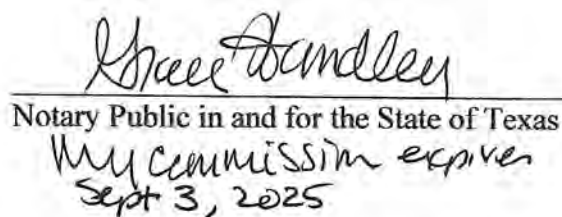 Grace Handley
Notary Public in and for the State of Texas
My commission expires
Sept 3, 2025